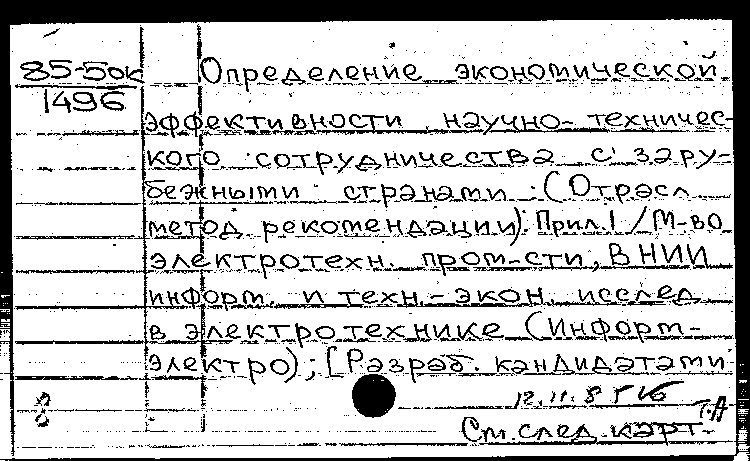 85-5ок
1496
Определение экономической
эффективности научно-техничес-
кого сотрудничества с зару-
бежными странами : (Отрасл.
метод. рекомендации): Прил. 1 / М-во
электротехн. пром-сти, ВНИИ
информ. и техн.-экон. исслед.
в электротехнике (Информ-
электро); [Разраб. кандидатами
12.11.8
Т.А
См. след. карт.